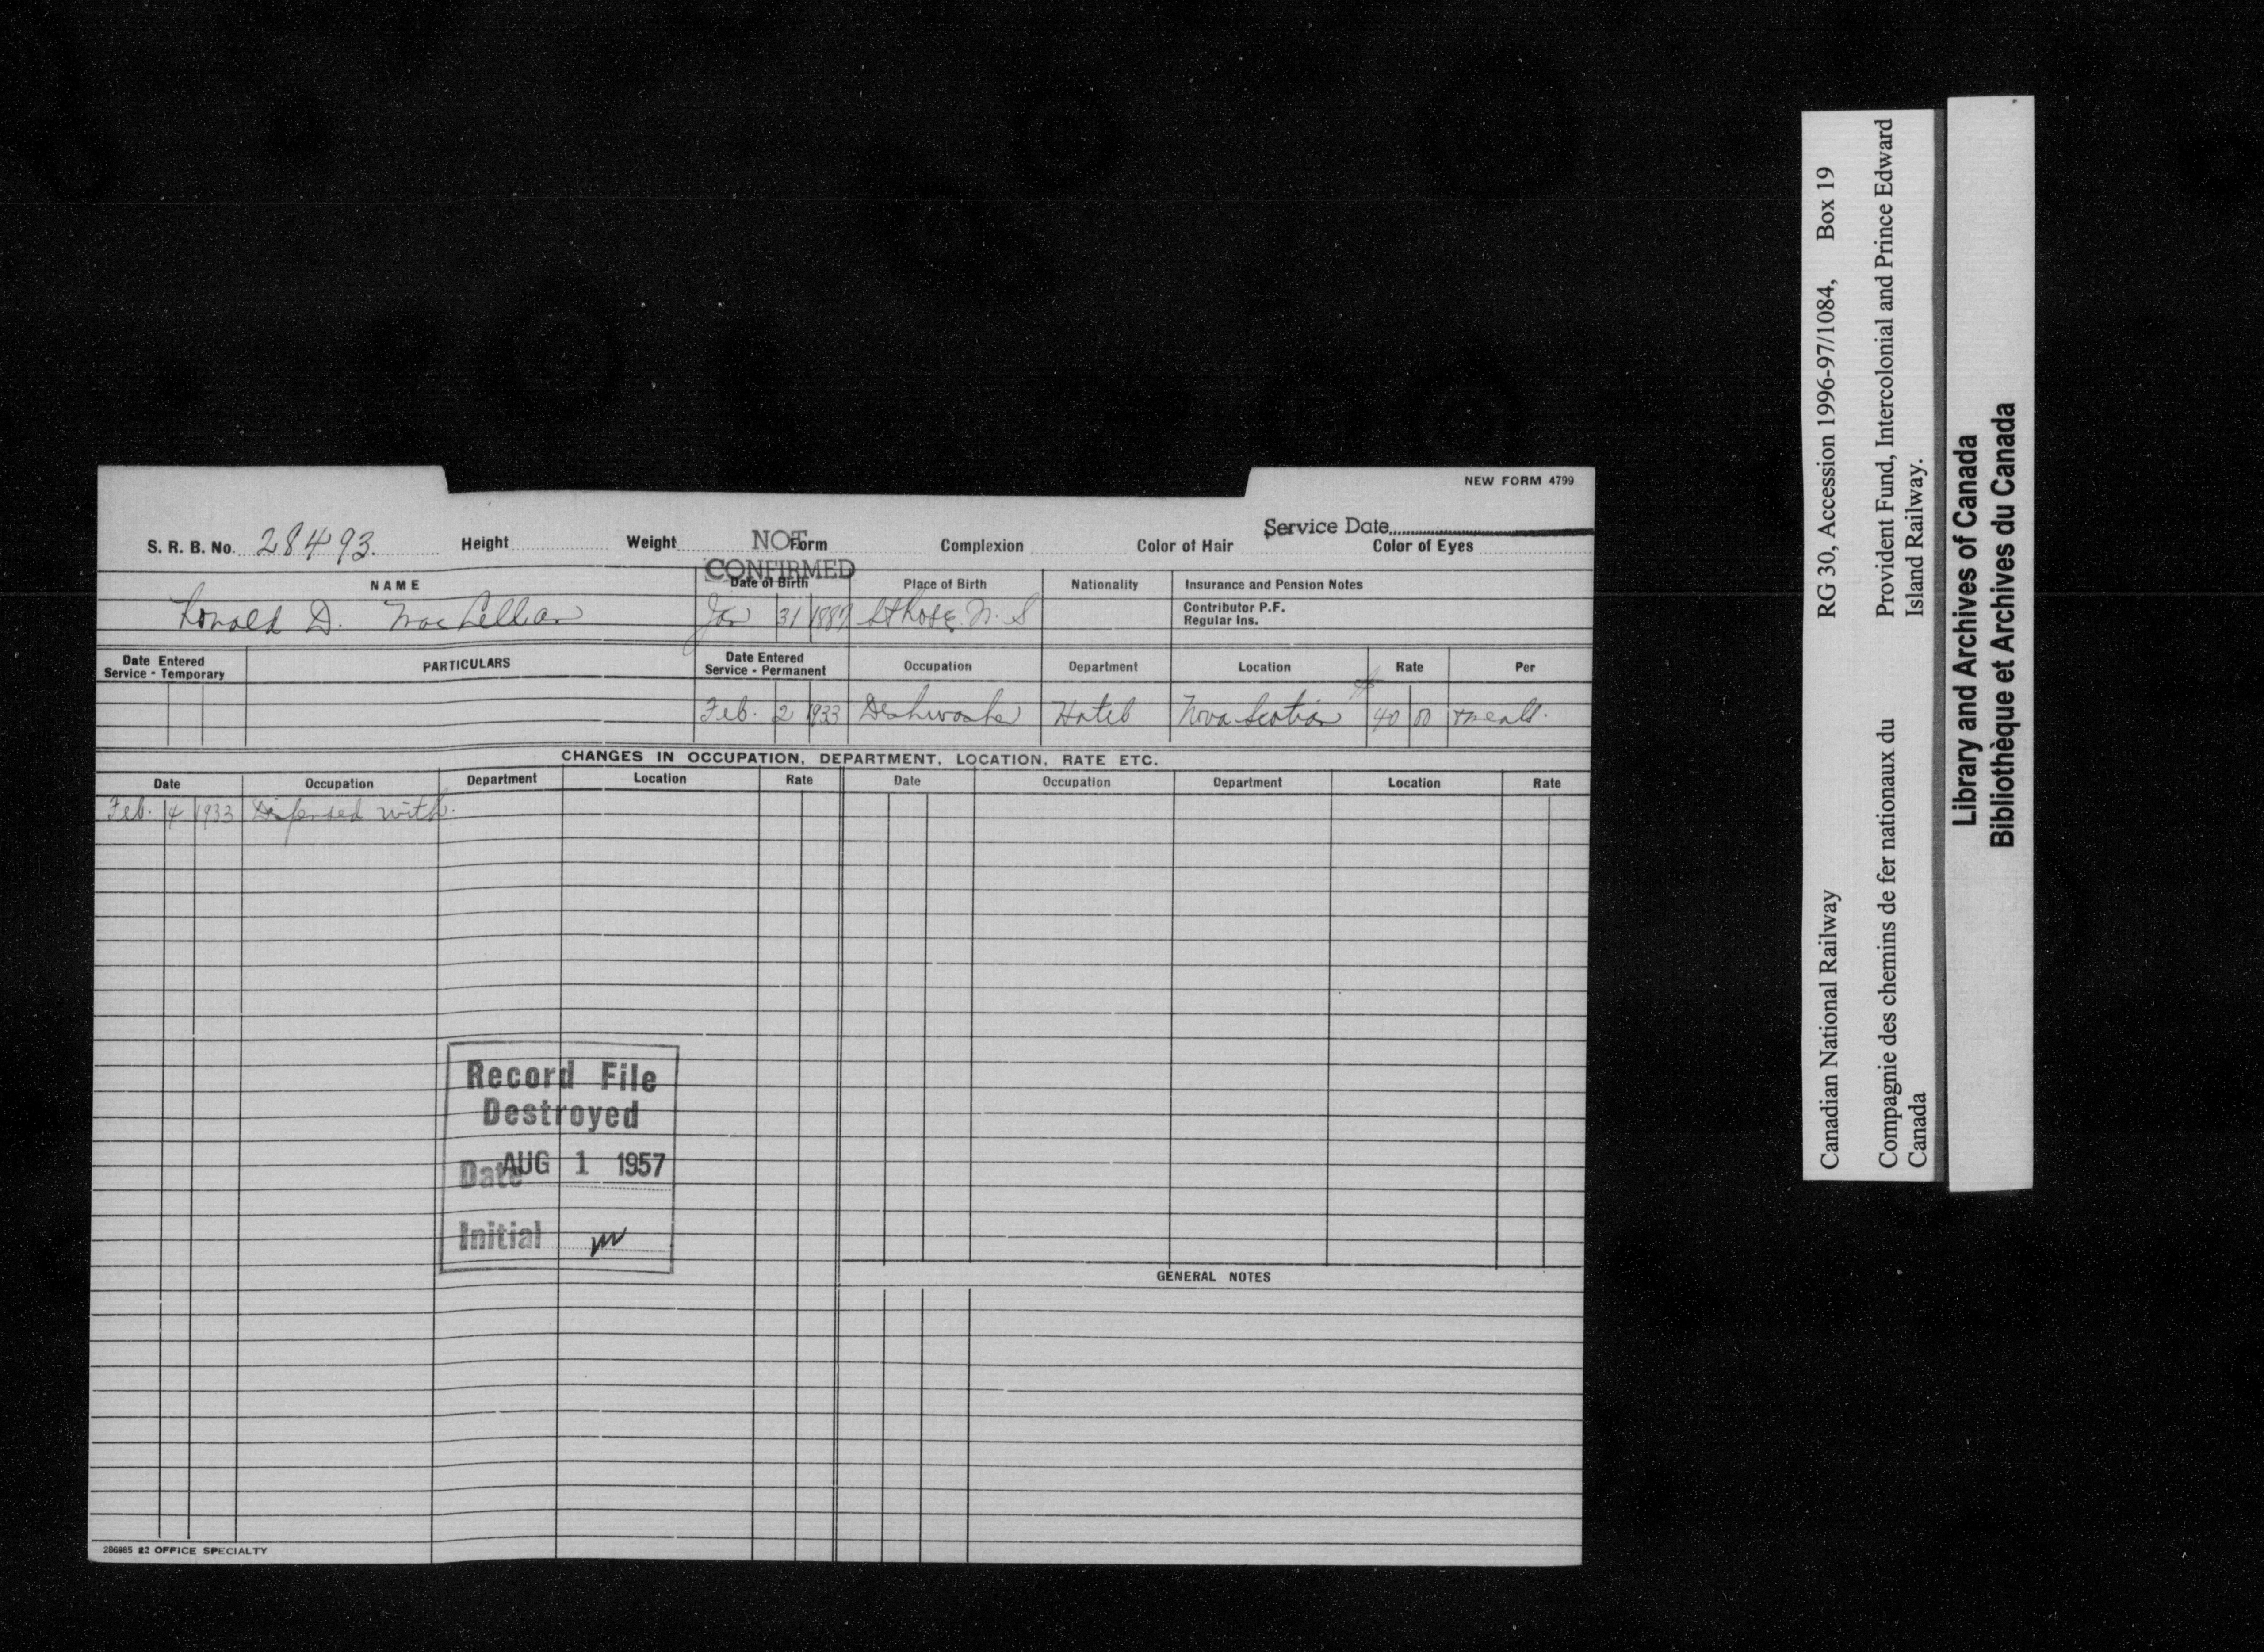 NEW FORM 4799
Service Date
S. R. B. No. 28493. Height Weight Form Complexion Color of Hair Color of Eyes
NOT
CONFIRMED
NAME Date of Birth Place of Birth Nationality Insurance and Pension Notes
Ronald D. MacLellan Jan 31 1887 St Rose. N. S
Contributor P.F.
Regular Ins.
Date Entered Service - Temporary PARTICULARS Date Entered Service - Permanent Occupation Department Location Rate Per
Feb. 2 1933 Dishwasher Hotel Nova Scotian $ 40 00 + meals.
CHANGES IN OCCUPATION, DEPARTMENT, LOCATION, RATE ETC.
Date Occupation Department Location Rate Date Occupation Department Location Rate
Feb. 4 1933 Dispensed with.
Record File
Destroyed
Date AUG 1 1957
Initial
GENERAL NOTES
286985 22 OFFICE SPECIALTY
Canadian National Railway RG 30, Accession 1996-97/1084, Box 19
Compagnie des chemins de fer nationaux du Canada
Provident Fund, Intercolonial and Prince Edward Island Railway.
Library and Archives of Canada
Bibliothèque et Archives du Canada